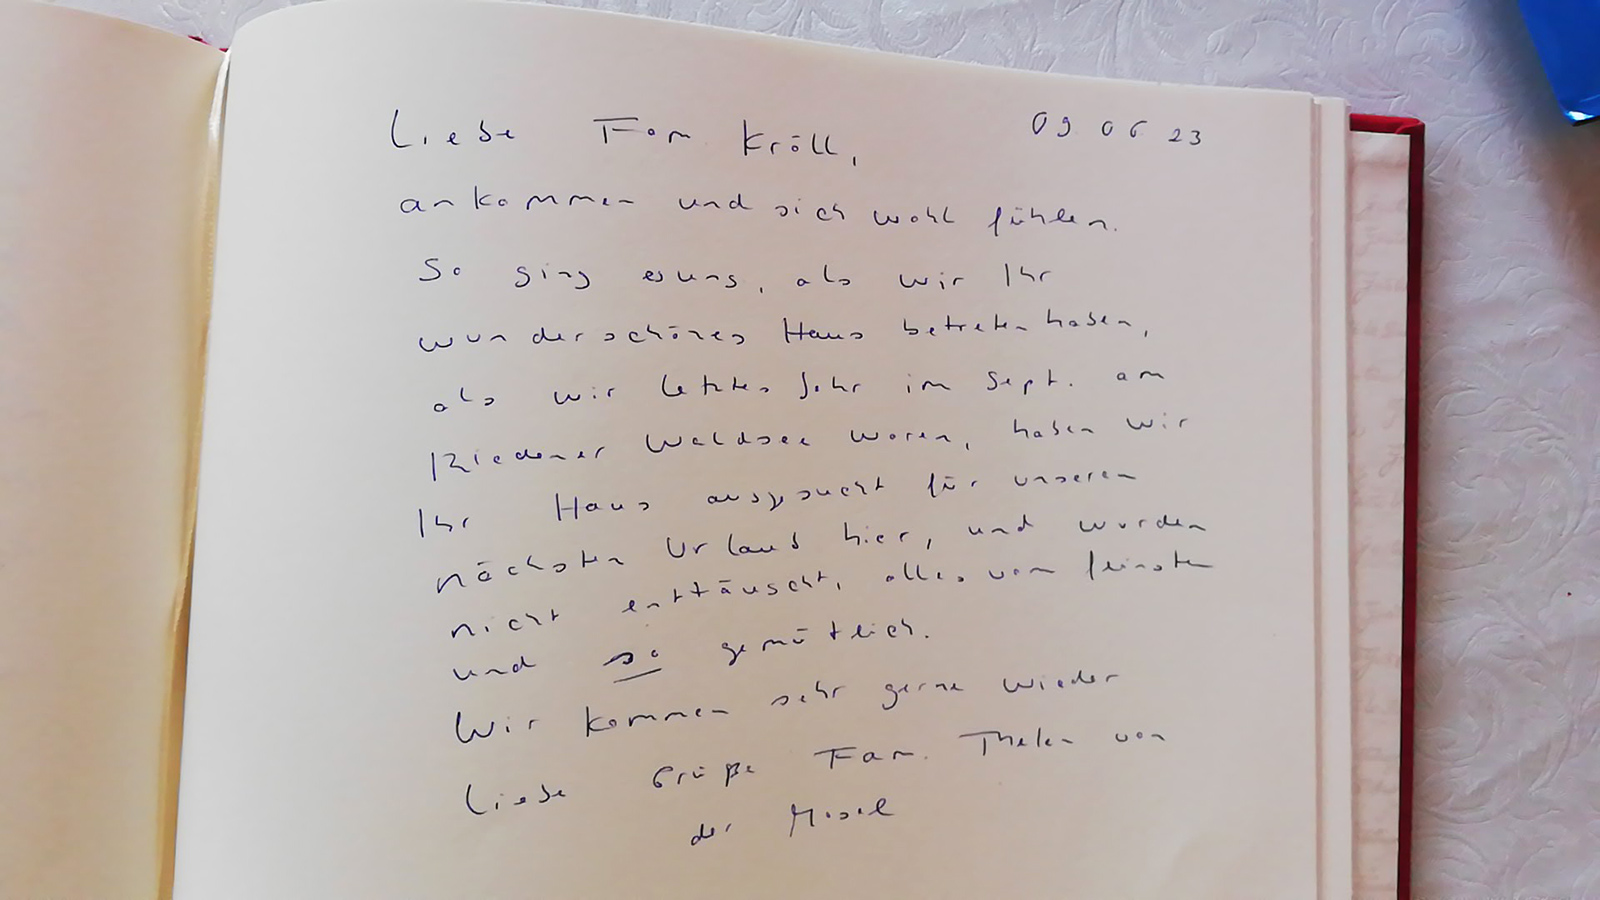 Liebe Fam Kröll, 09 06 23
ankommen und sich wohl fühlen.
So ging es uns, als wir Ihr
wunderschönes Haus betreten haben,
als wir letztes Jahr im Sept. am
Riedener Waldsee waren, haben wir
Ihr Haus ausgesucht für unseren
nächsten Urlaub hier, und wurden
nicht enttäuscht, alles vom feinsten
und so gemütlich.
Wir kommen sehr gerne wieder
Liebe Grüße Fam. Thelen von
der Mosel